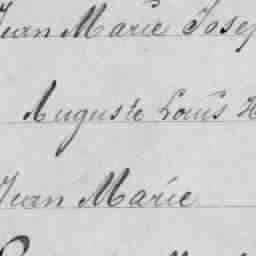 Jean Marie Josep
Auguste Louis H
Jean Marie